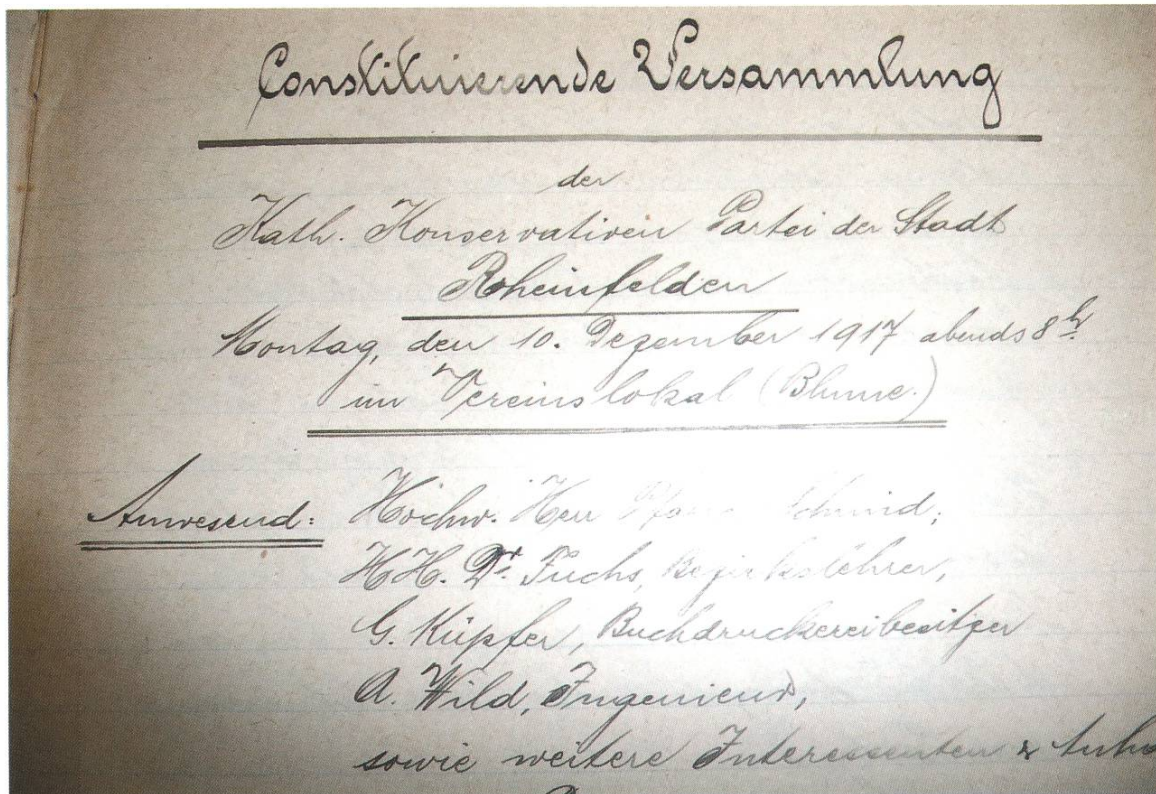 Constituierende Versammlung
der
Kath. Konservativen Partei der Stadt
Rheinfelden
Montag, den 10. Dezember 1917 abends 8 h.
im Vereinslokal (Blume.)
Anwesend: Hochw. Herr Pfarrer Schmid;
HH. Dr. Fuchs, Bezirkslehrer,
G. Küpfer, Buchdruckereibesitzer
A. Wild, Ingenieur,
sowie weitere Interessenten &